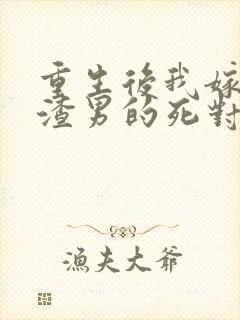 重生後我嫁
渣男的死對
漁夫大爺